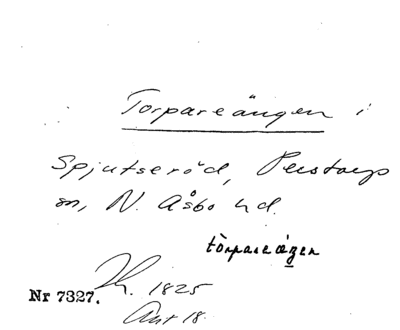 Torpareängen i
Spjutseröd, Perstorps
sn, N. Åsbo hd.
tòrpareäŋen
Nr 7327. Th. 1825
Akt 18.